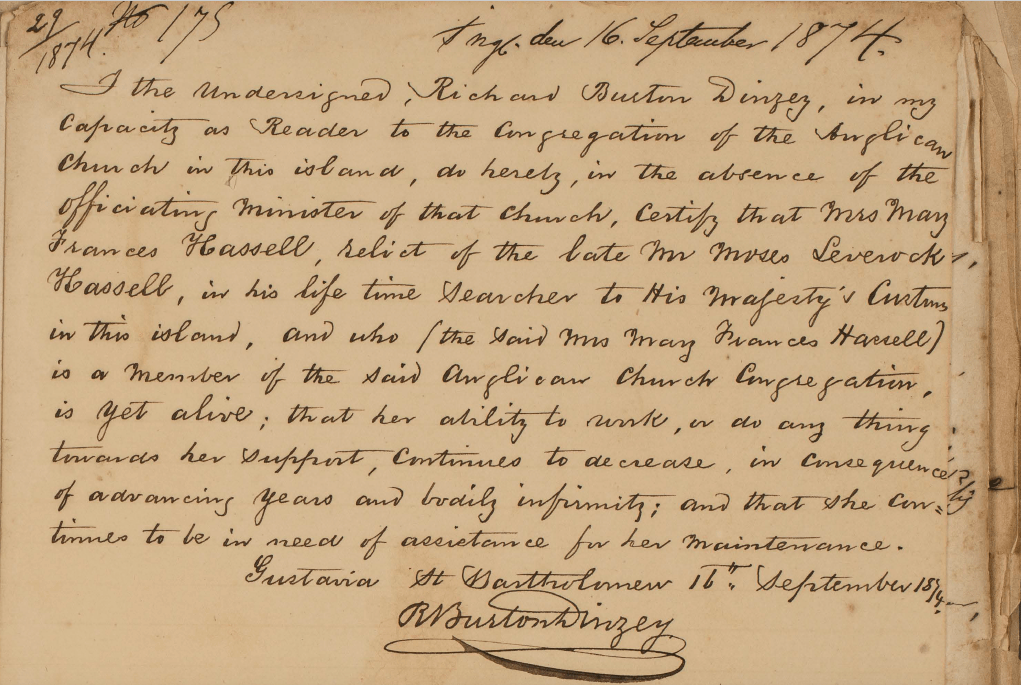 29/1874. No 175
Ingf. den 16. September 1874.
I the Undersigned, Richard Burton Dinzey, in my
Capacity as Reader to the Congregation of the Anglican
Church in this island, do hereby, in the absence of the
officiating Minister of that Church, Certify that Mrs Mary
Frances Hassell, relict of the late Mr Moses Leverock
Hassell, in his life time Searcher to His Majesty's Customs
in this island, and who (the said Mrs Mary Frances Hassell)
is a Member of the said Anglican Church Congregation,
is yet alive; that her ability to work, or do any thing
towards her support, Continues to decrease, in consequence
of advancing years and bodily infirmity; and that she con=
tinues to be in need of assistance for her maintenance.
Gustavia St Bartholomew 16th September 1874
RBurtonDinzey